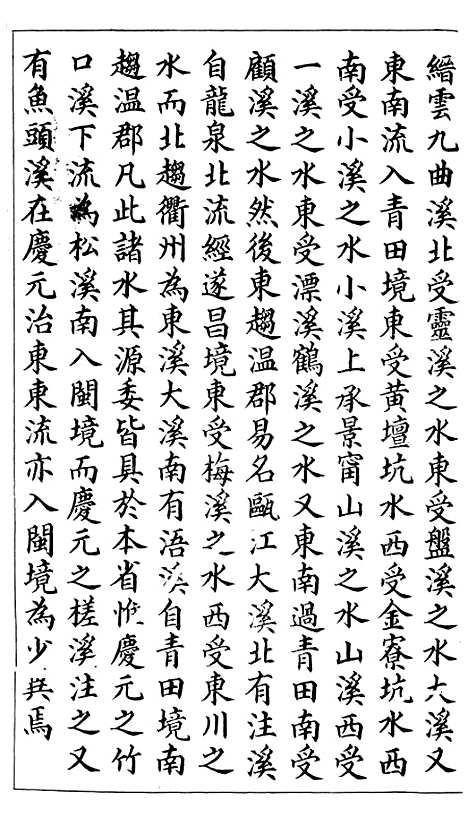 縉雲九曲溪北受靈溪之水東受盤溪之水大溪又
東南流入青田境東受黃壇坑水西受金寮坑水西
南受小溪之水小溪上承景甯山溪之水山溪西受
一溪之水東受漂溪鶴溪之水又東南過青田南受
顧溪之水然後東趨溫郡易名甌江大溪北有注溪
自龍泉北流經遂昌境東受梅溪之水西受東川之
水而北趨衢州為東溪大溪南有浯溪自青田境南
趨溫郡凡此諸水其源委皆具於本省惟慶元之竹
口溪下流為松溪南入閩境而慶元之槎溪注之又
有魚頭溪在慶元治東東流亦入閩境為少異焉